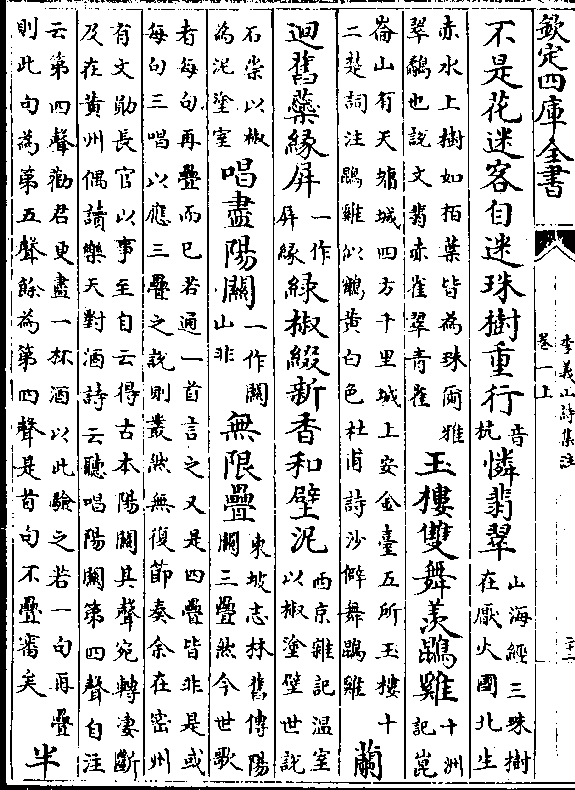 欽定四庫全書
李義山詩集注
卷一上
不是花迷客自迷珠樹重行
音
杭
憐翡翠
山海經三珠樹
在厭火國北生
赤水上樹如栢葉皆為珠爾雅
翠鷸也說文翡赤雀翠青雀
玉樓雙舞羡鵾雞
十洲
記崑
崙山有天墉城四方千里城上安金臺五所玉樓十
二楚詞注鵾雞似鶴黄白色杜甫詩沙僻舞鵾雞
蘭
迴舊蘂緣屏
一作
屏緣
緑椒綴新香和壁泥
西京雜記温室
以椒塗壁世説
石崇以椒
為泥塗室
唱盡陽關
一作關
山非
無限疊
東坡志林舊傳陽
關三疊然今世歌
者每句再疊而已若通一首言之又是四疊皆非是或
每句三唱以應三疊之說則叢然無復節奏余在密州
有文勛長官以事至自云得古本陽關其聲宛轉淒斷
及在黄州偶讀樂天對酒詩云聽唱陽關第四聲自注
云第四聲勸君更盡一杯酒以此驗之若一句再疊
則此句為第五聲餘為第四聲是首句不疊審矣
半